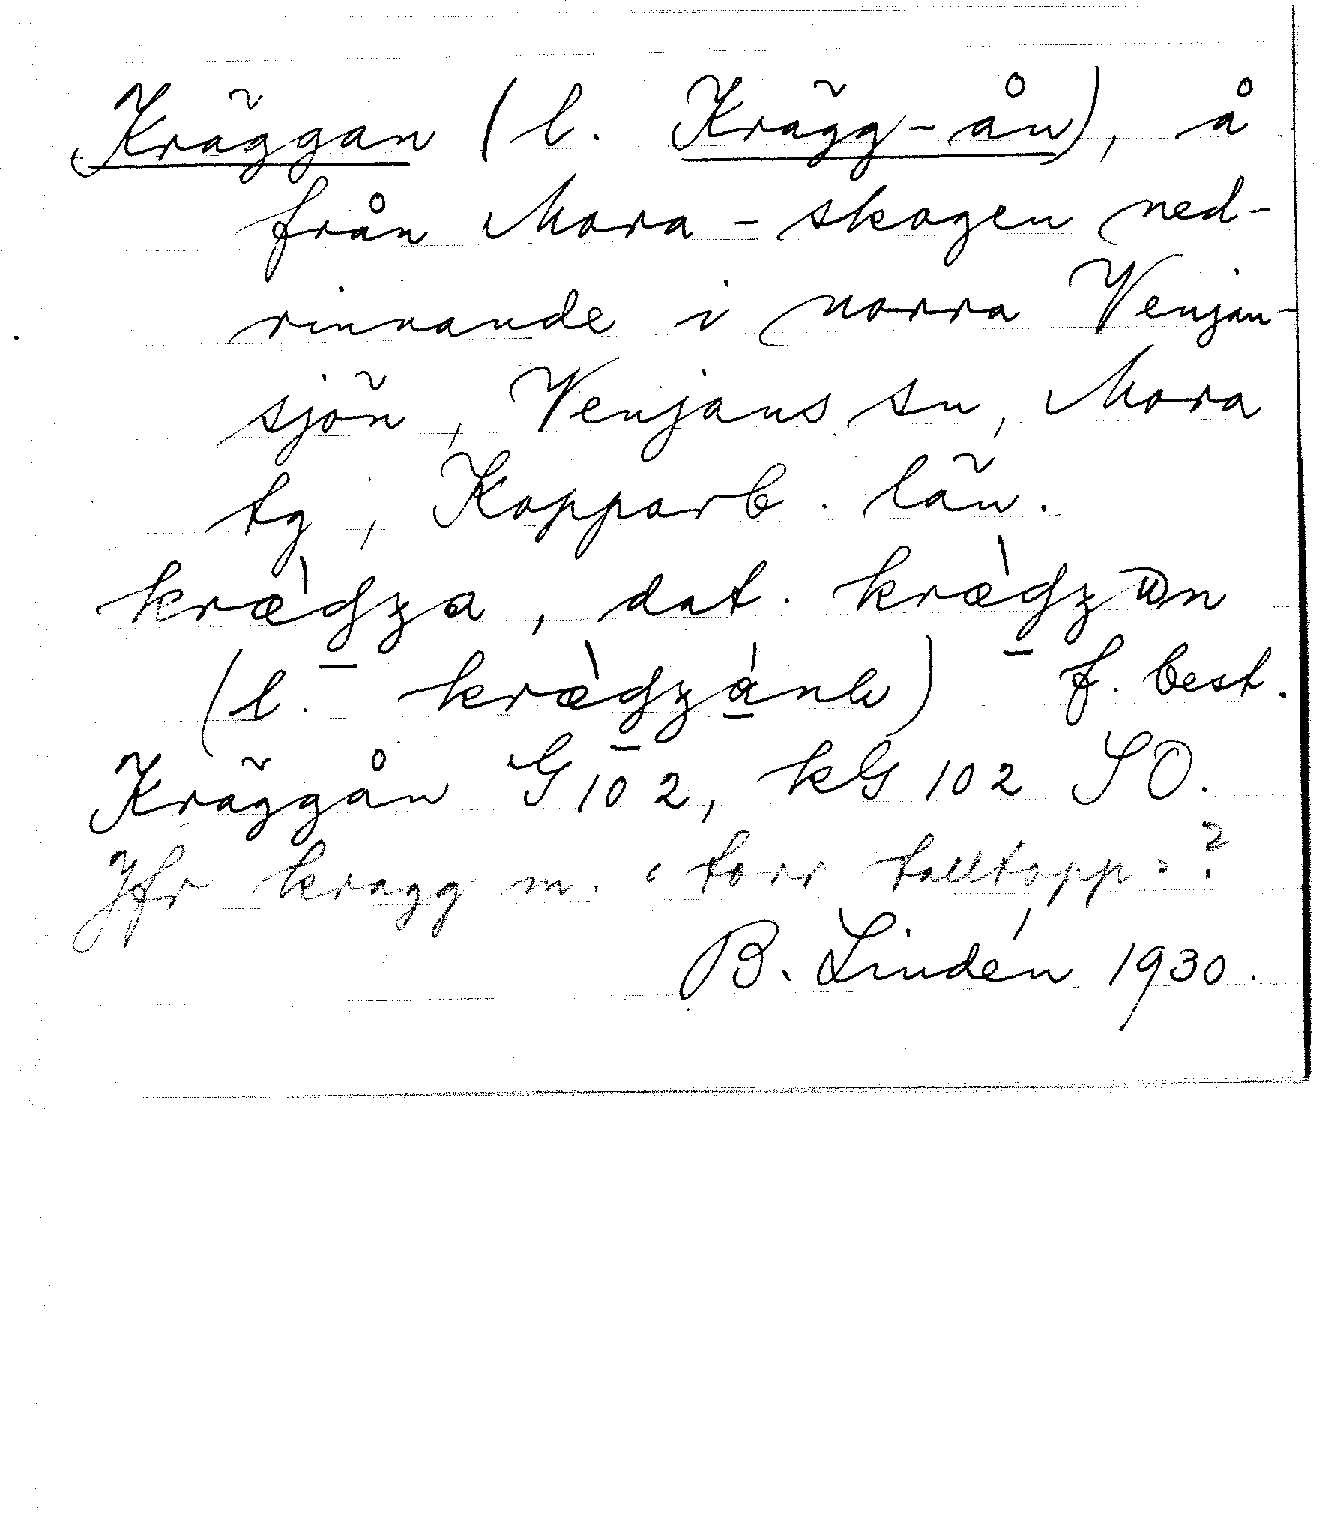 Kräggan (l. Krägg-ån), å
från Mora-skogen ned-
rinnande i norra Venjan-
sjön, Venjans sn, Mora
tg, Kopparb. län.
dat.
(l. f. best.
Kräggån G102, kG 102 SO.
Jfr kragg m. "torr talltopp"?
B. Lindén 1930.